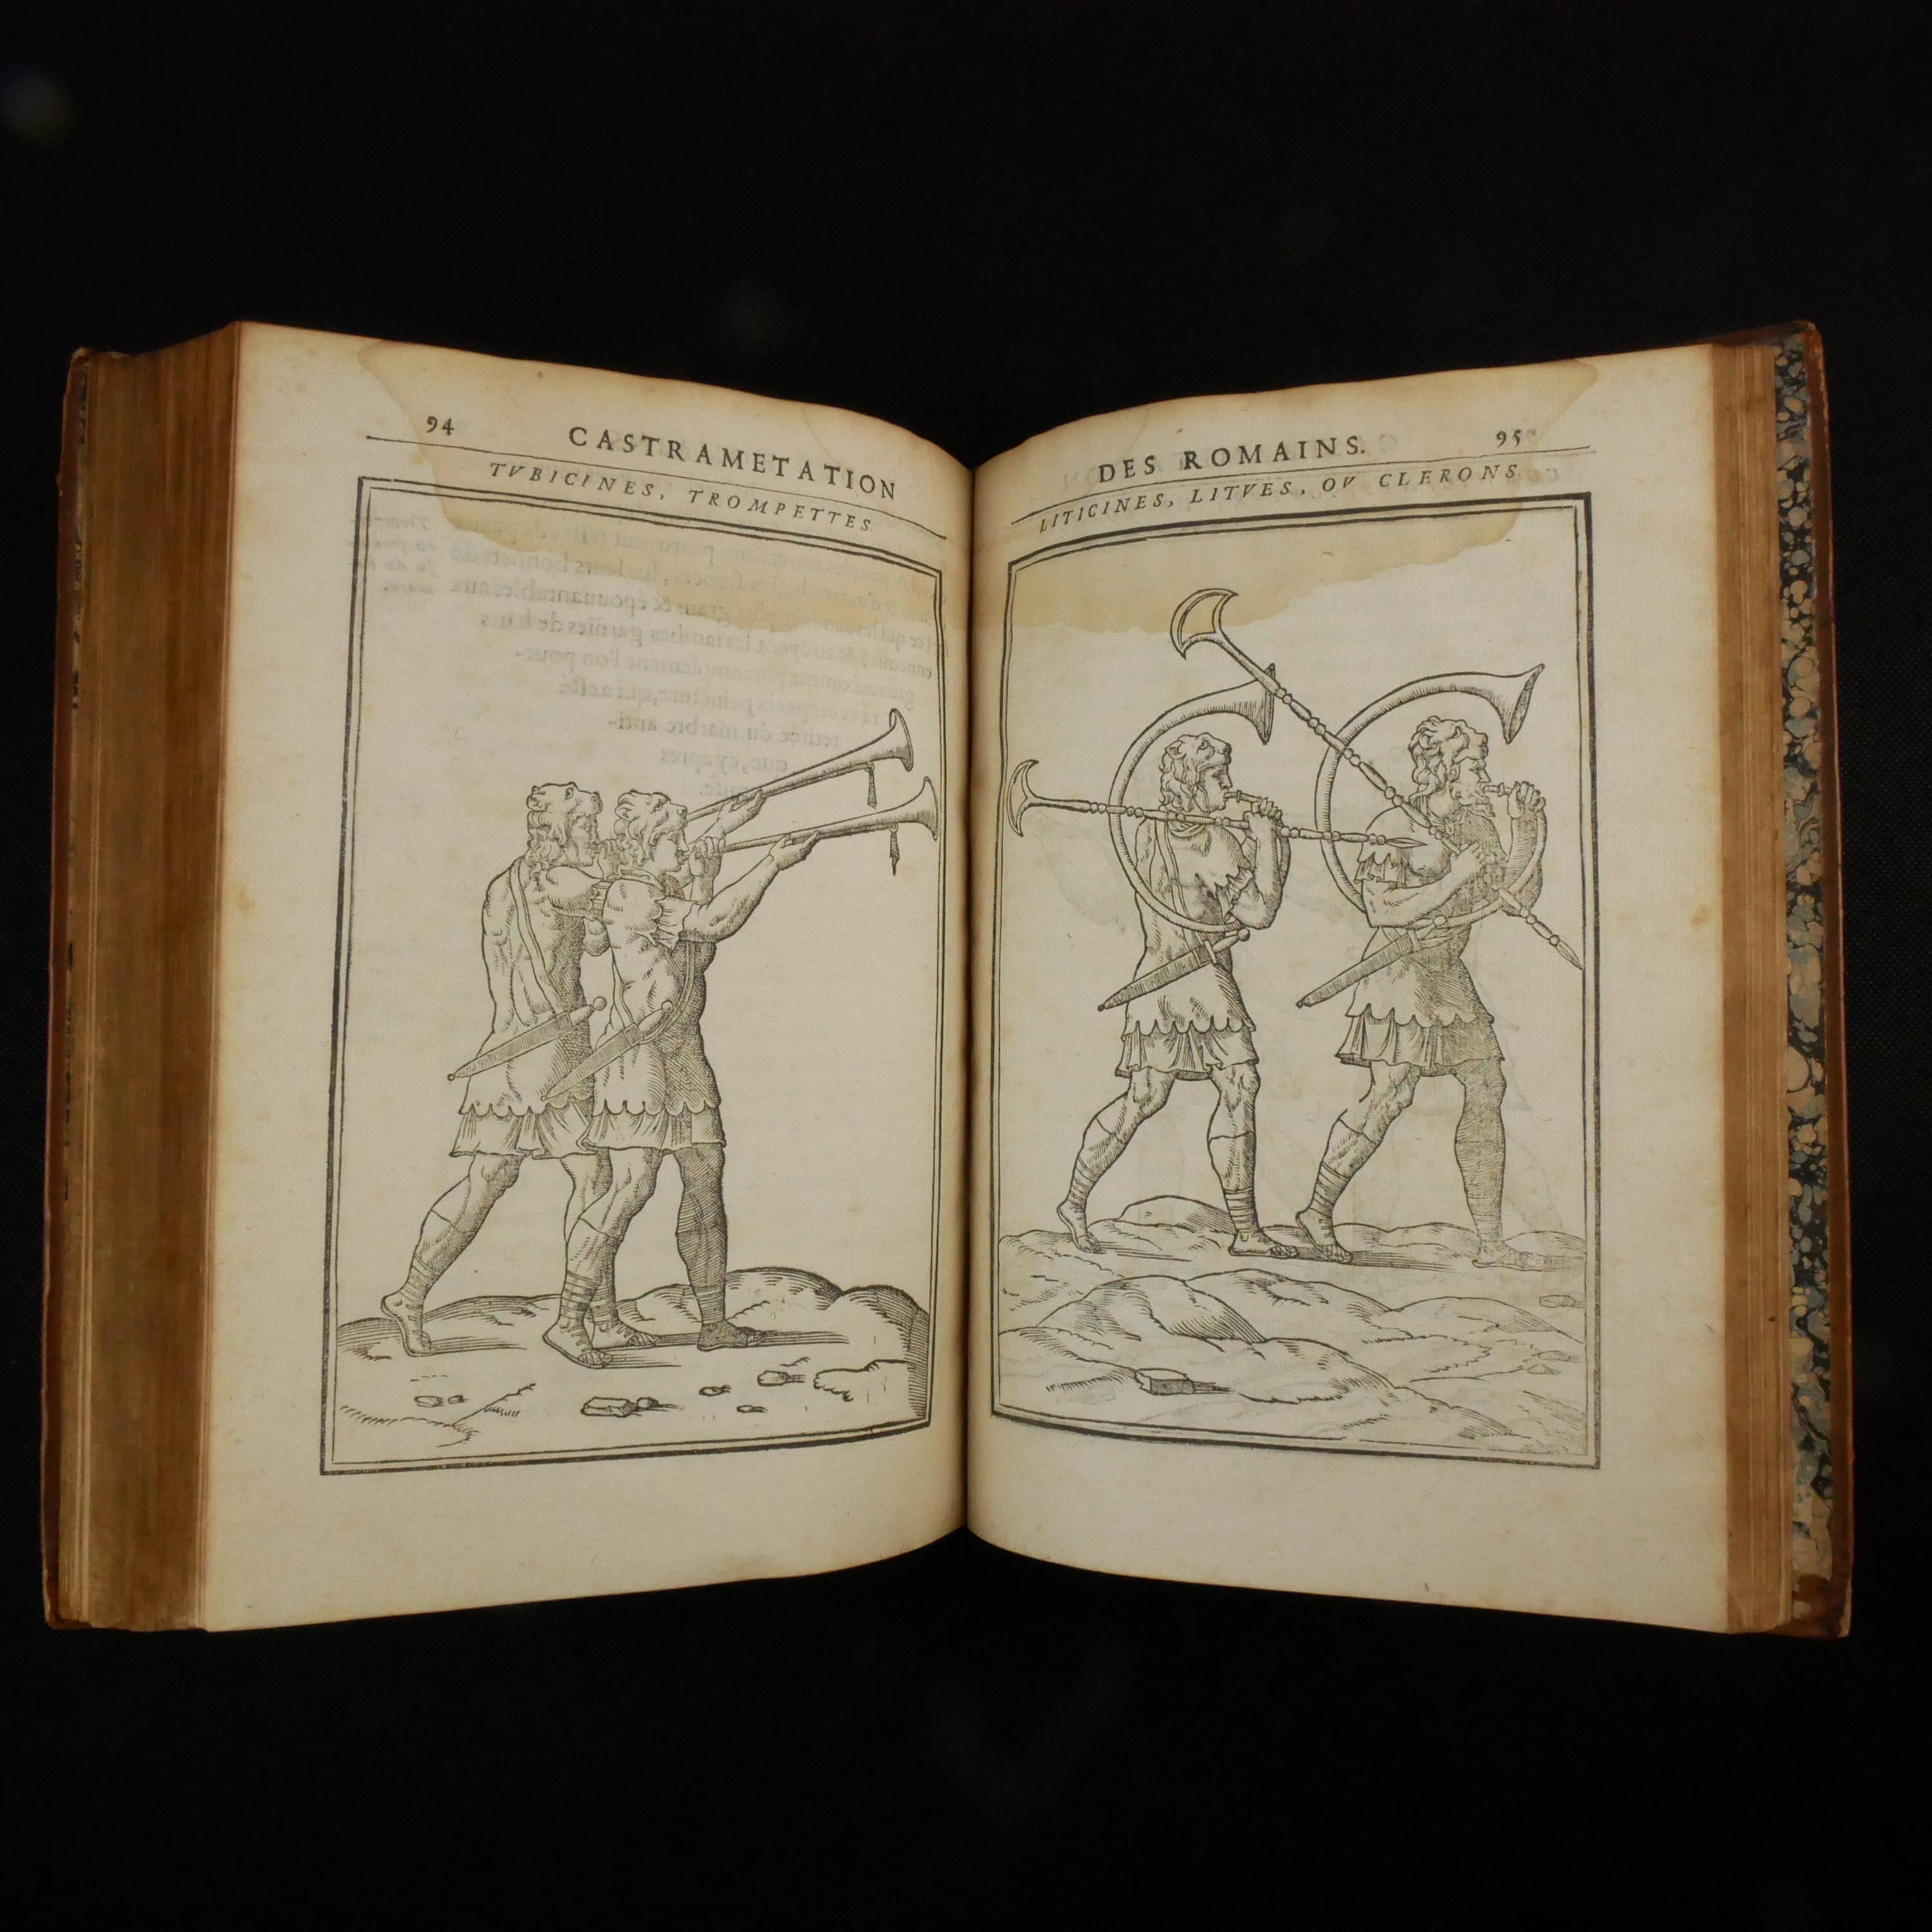 94
CASTRAMETATION
TVBICINES, TROMPETTES.
DES ROMAINS.
95
LITICINES, LITVES, OV CLERONS